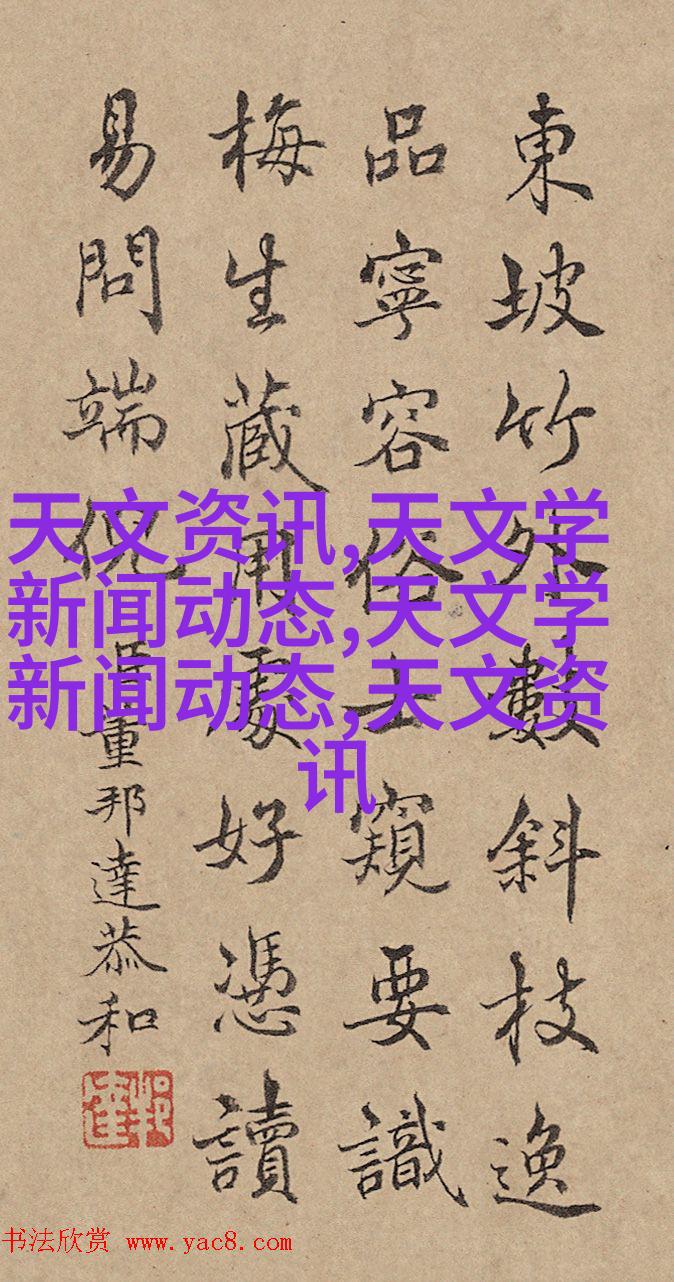 東坡竹外數斜枝逸
品寧容俗士窺要識
梅生藏用處好憑讀
易問端倪
臣董邦達恭和
天文资讯,天文学
新闻动态,天文学
新闻动态,天文资
讯
书法欣赏 www.yac8.com